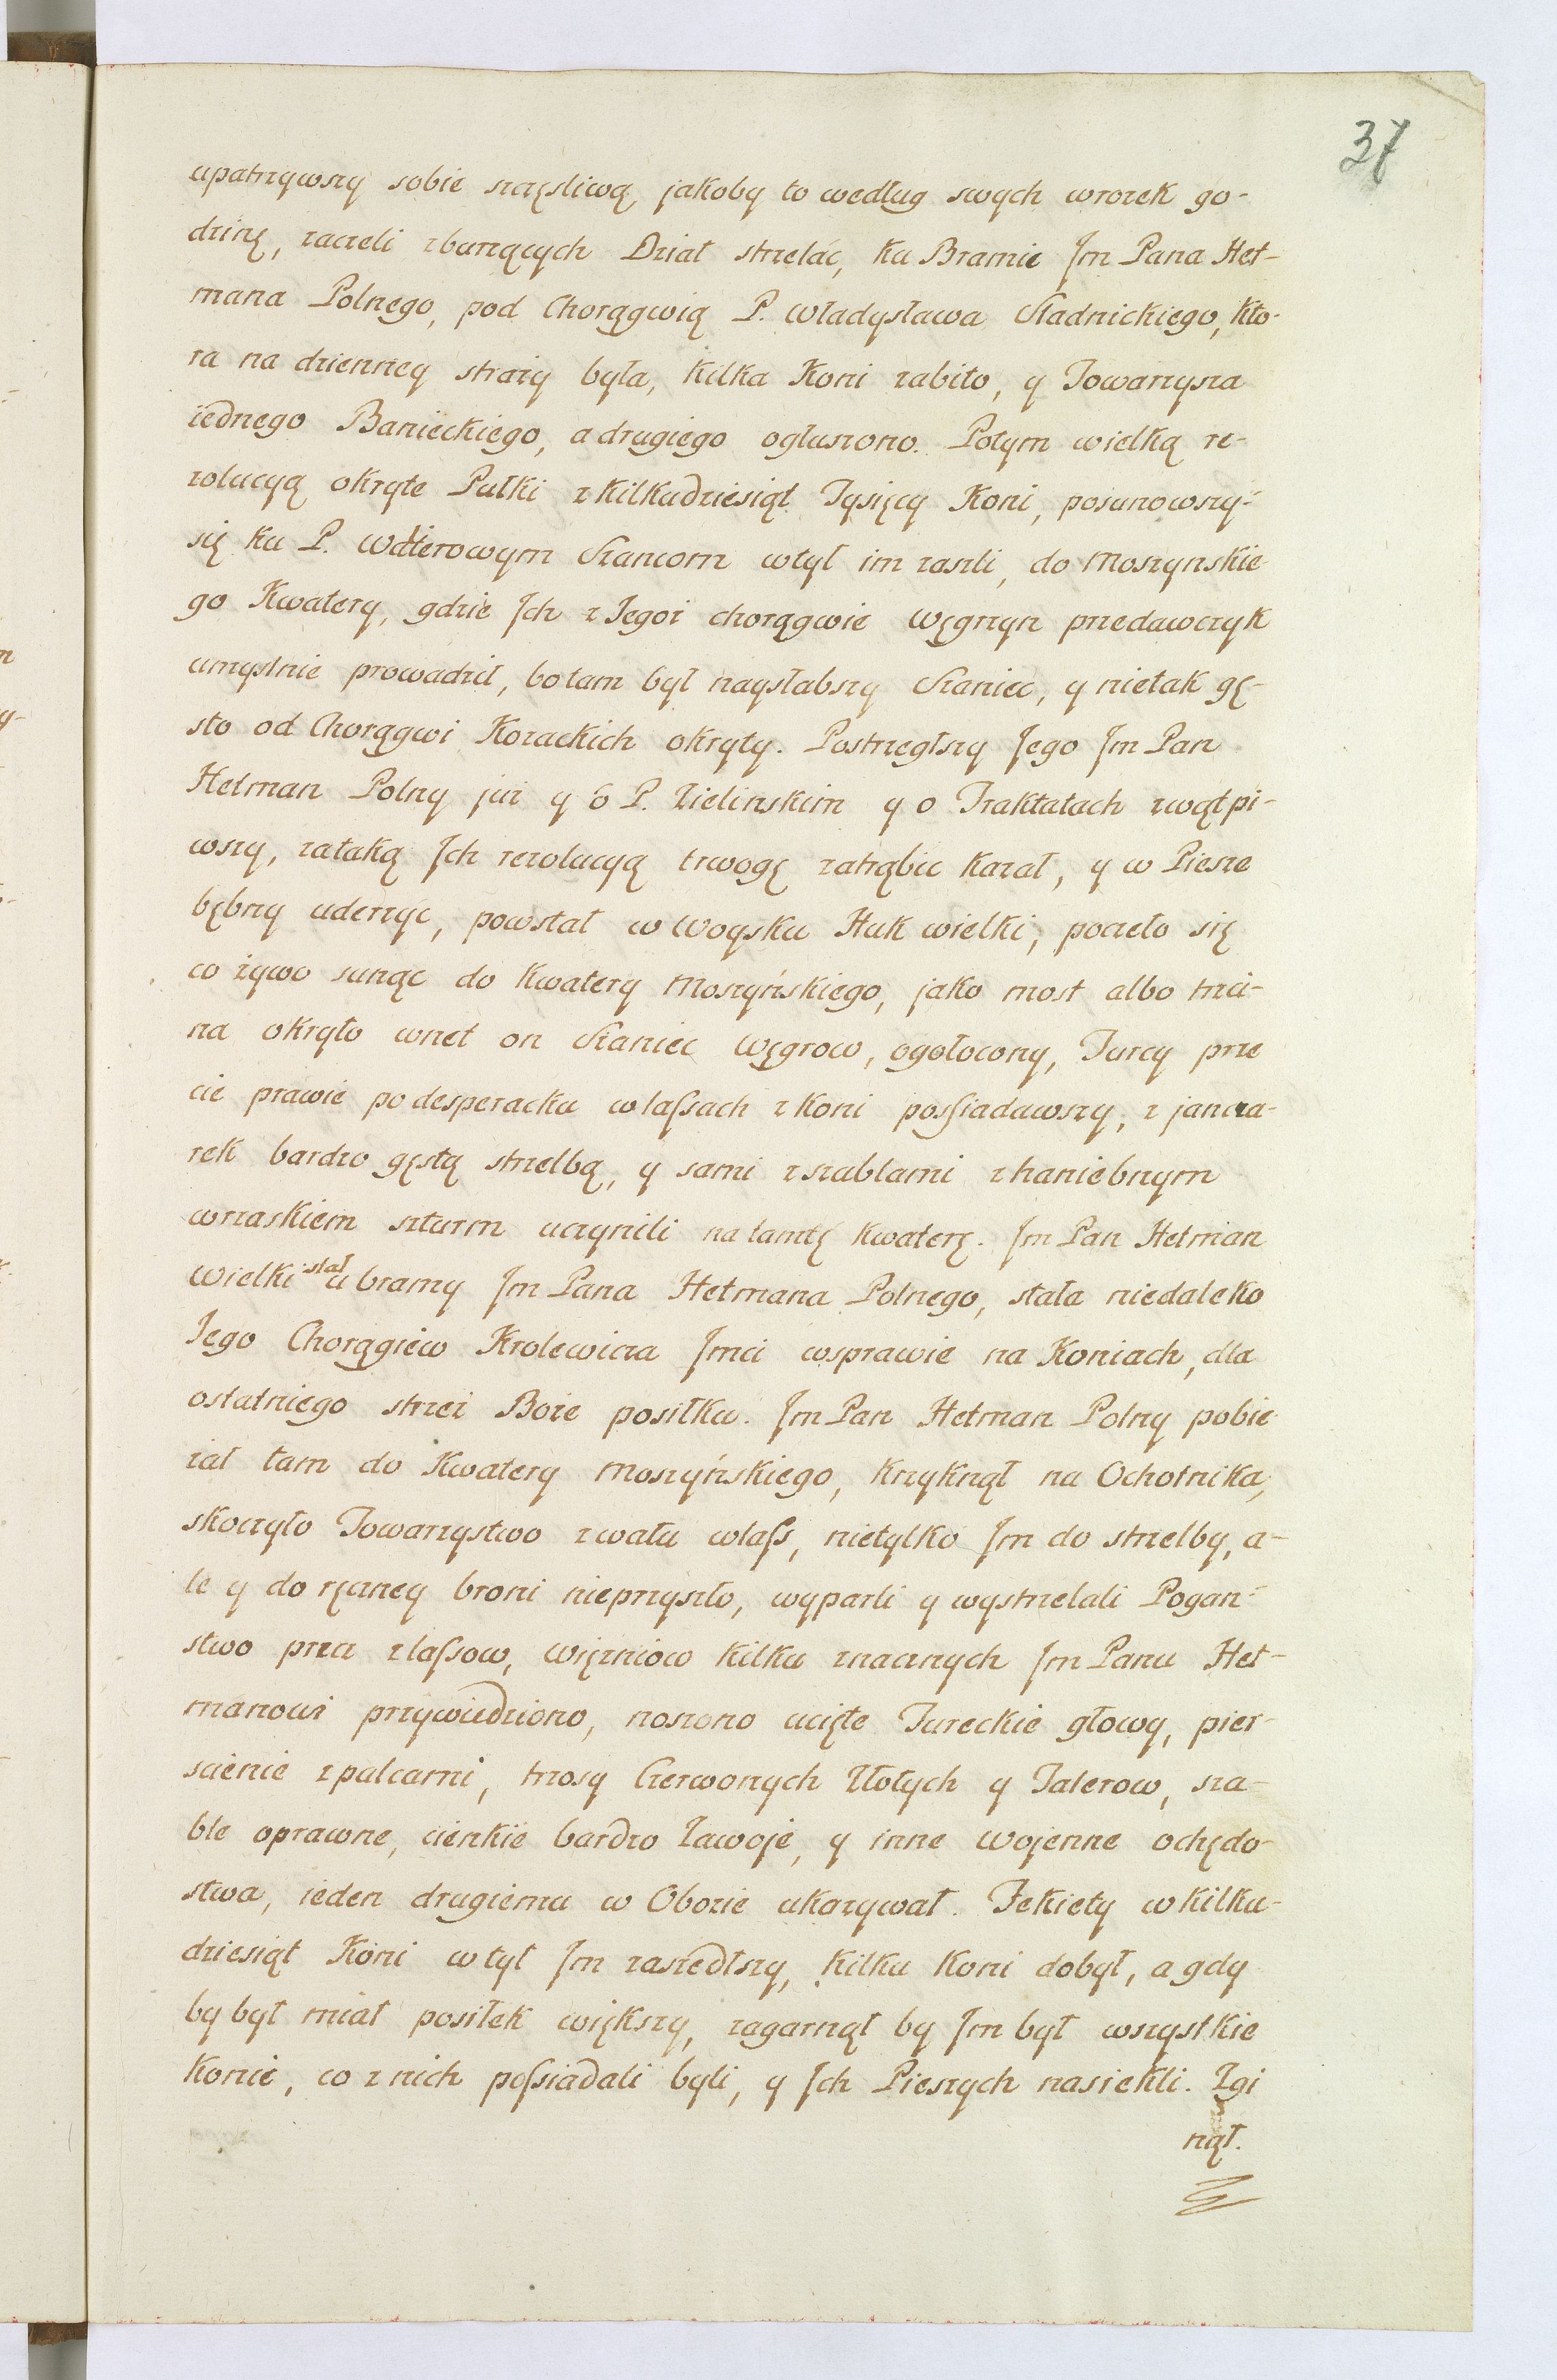 37
upatrzywszy sobie szczęsliwą jakoby to według swych wrozek go-
dzinę, zaczeli zburzących Dział strzelác, ku Bramie Jm Pana Het-
mana Polnego, pod Chorągwią P. Władysława Stadnickiego, kto-
ra na dzienney straży była, kilka Koni zabito, y Towarzysza
iednego Banieckiego, a drugiego ogłuszono. Potym wielką re-
zolucyą okryte Pułki z kilkudziesiąt Tysięcy Koni, posunowszy-
się ku P. Wáterowym Szancom wtył im zaszli, do Moszynskie-
go Kwatery, gdzie Jch z Jegoż chorągwie Węgrzyn przedawczyk
umyslnie prowadził, bo tam był naysłabszy Szaniec, y nietak gę-
sto od Chorągwi Kozackich okryty. Postrzegłszy Jego Jm Pan
Hetman Polny już y o P. Zielinskim y o Traktatach zwątpi-
wszy, zataką Jch rezolucyą trwogę zatrąbic kazał, y w Piesze
bębny uderzyc, powstał w Woysku Huk wielki, poczeło się
co żywo sunąc do kwatery Moszyńskiego, jako most albo trzci-
na okryło wnet on Szaniec Węgrow, ogołocony, Turcy prze
cie prawie po desperacku w lassach z koni possiadawszy, z jancza-
rek bardzo gęstą strzelbą, y sami z szablami z haniebnym
wrzaskiem szturm uczynili na tamtę kwaterę. Jm Pan Hetman
Wielki stał u bramy Jm Pana Hetmana Polnego, stała niedaleko
Jego Chorągiew Krolewicza Jmci wsprawie na Koniach, dla
ostatniego strzeż Boże posiłku. Jm Pan Hetman Polny pobie-
żał tam do Kwatery Moszyńskiego, krzyknął na Ochotnika,
skoczyło Towarzystwo z wału wlass, nietylko Jm do strzelby, a-
le y do ręczney broni nieprzyszło, wyparli y wystrzelali Pogan-
stwo precz z lassow, więzniow kilku znacznych Jm Panu Het-
manowi przywiedziono, noszono ucięte Tureckie głowy, pier-
scienie z palcami, trzosy Czerwonych Złotych y Talerow, sza-
ble oprawne, cienkie bardzo Zawoje, y inne Wojenne ochędo-
stwa, ieden drugiemu w Obozie ukazywał. Fekiety w kilku-
dziesiąt Koni w tył Jm zaszedłszy, kilku koni dobył, a gdy
by był miał posiłek większy, zagarnął by Jm był wszystkie
konie, co z nich possiadali byli, y Jch Pieszych nasiekli. Zgi
nął.